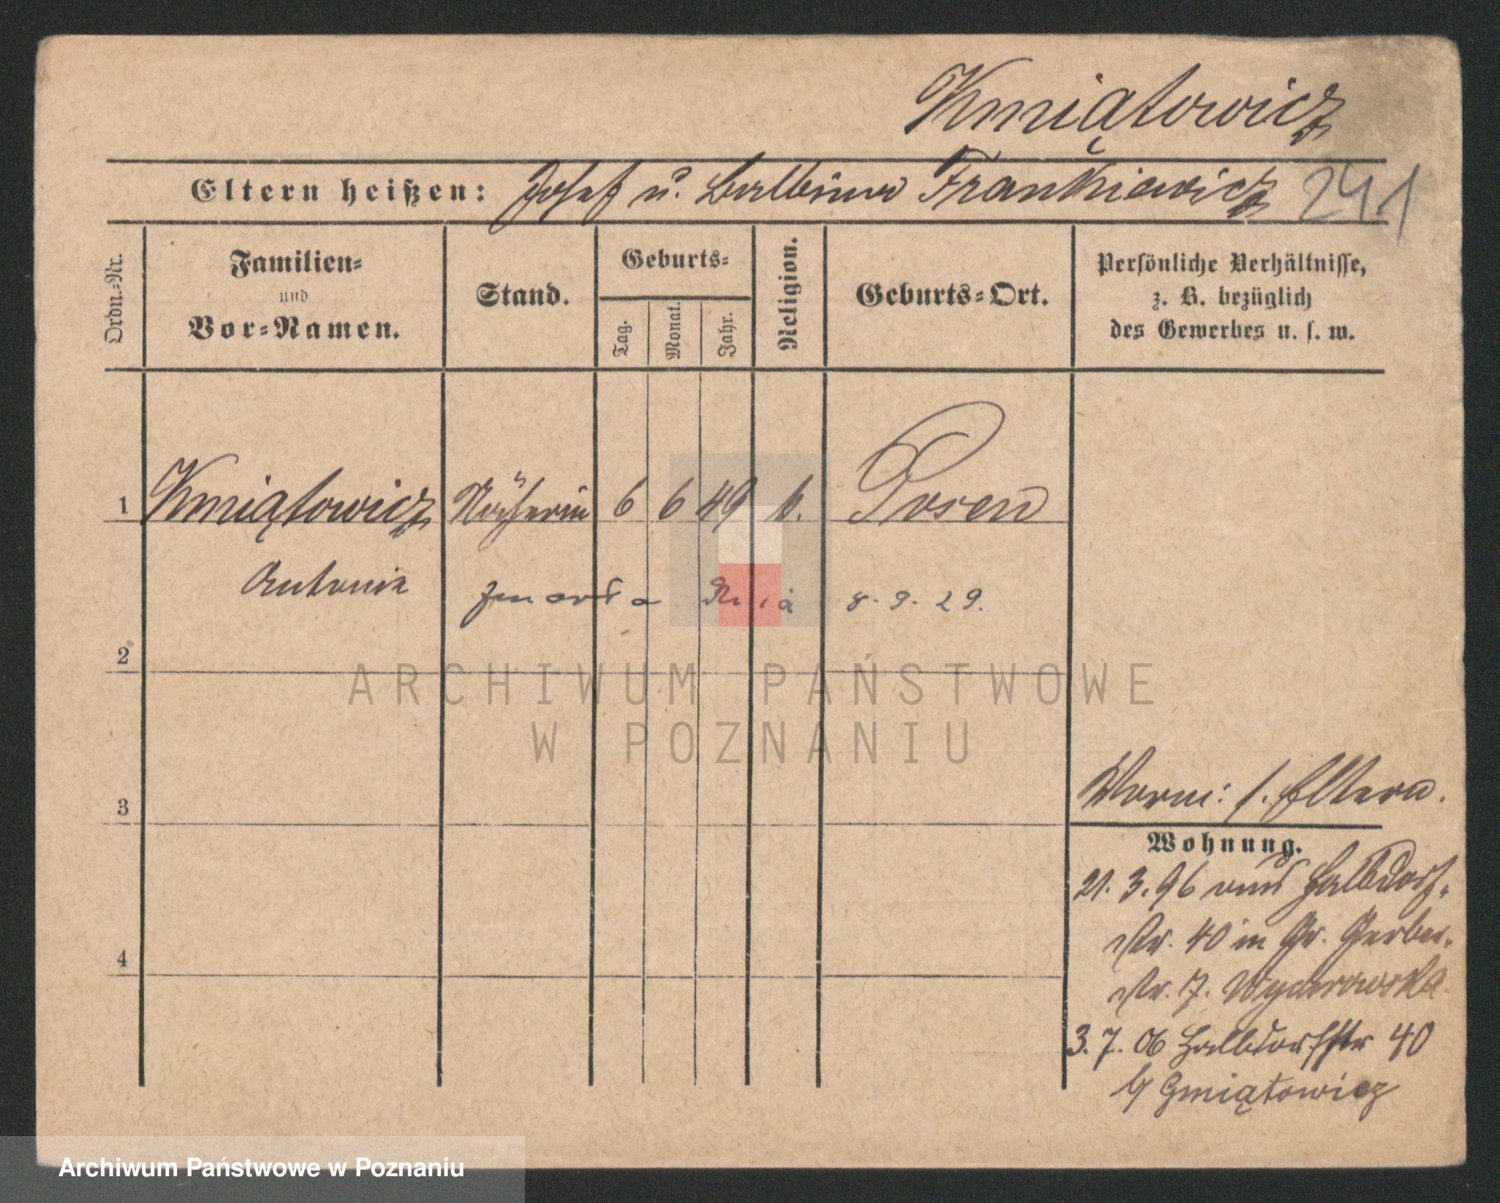 Kmiątowicz
Eltern heißen: Josef u. Balbina Frankiewicz 241
Ordn.-Nr.
Familien-
und
Vor-Namen.
Stand.
Geburts-
Tag.
Monat.
Jahr.
Religion.
Geburts-Ort.
Persönliche Verhältnisse,
z. B. bezüglich
des Gewerbes u. s. w.
1 Kmiątowicz Näherin 6 6 49 k. Posen
Antonie
zmarła 8. 9. 29.
2
3
4
ARCHIWUM PAŃSTWOWE
W POZNANIU
Vorw: s. Eltern.
Wohnung.
21. 3. 96 von Halbdorf-
str. 40 in Gr. Gerber-
str. 7.
3. 7. 06 Halbdorfstr 40
b/ Gmiątowicz
Archiwum Państwowe w Poznaniu